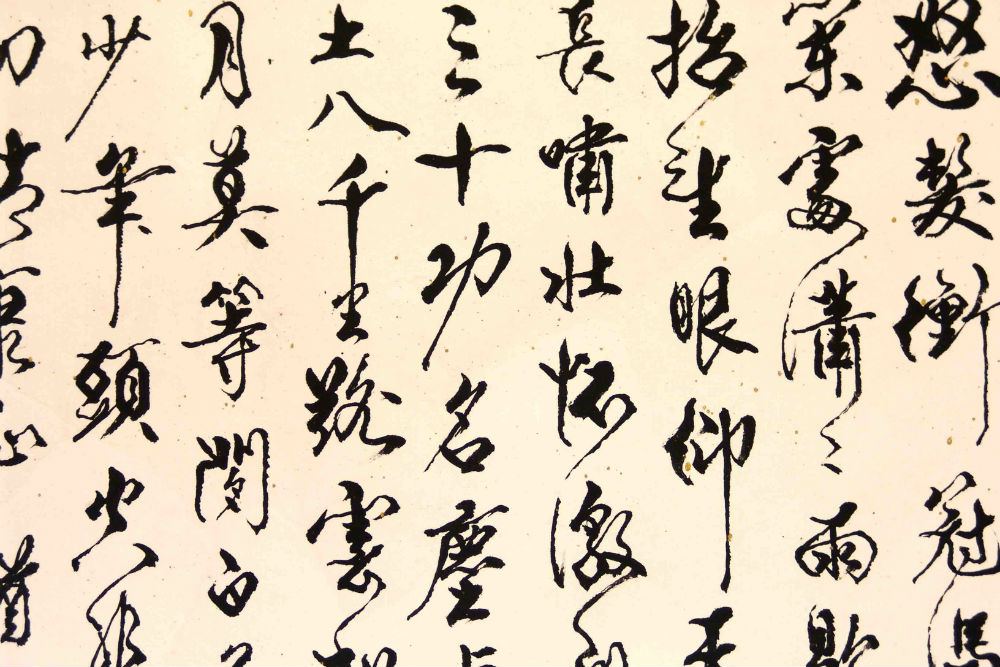 怒髮衝冠馮
處瀟々雨歇
抬望眼仰天
長嘯壯懷激烈
三十功名塵
土八千里路雲和
月莫等閒白了
少年頭空悲
切靖康恥猶